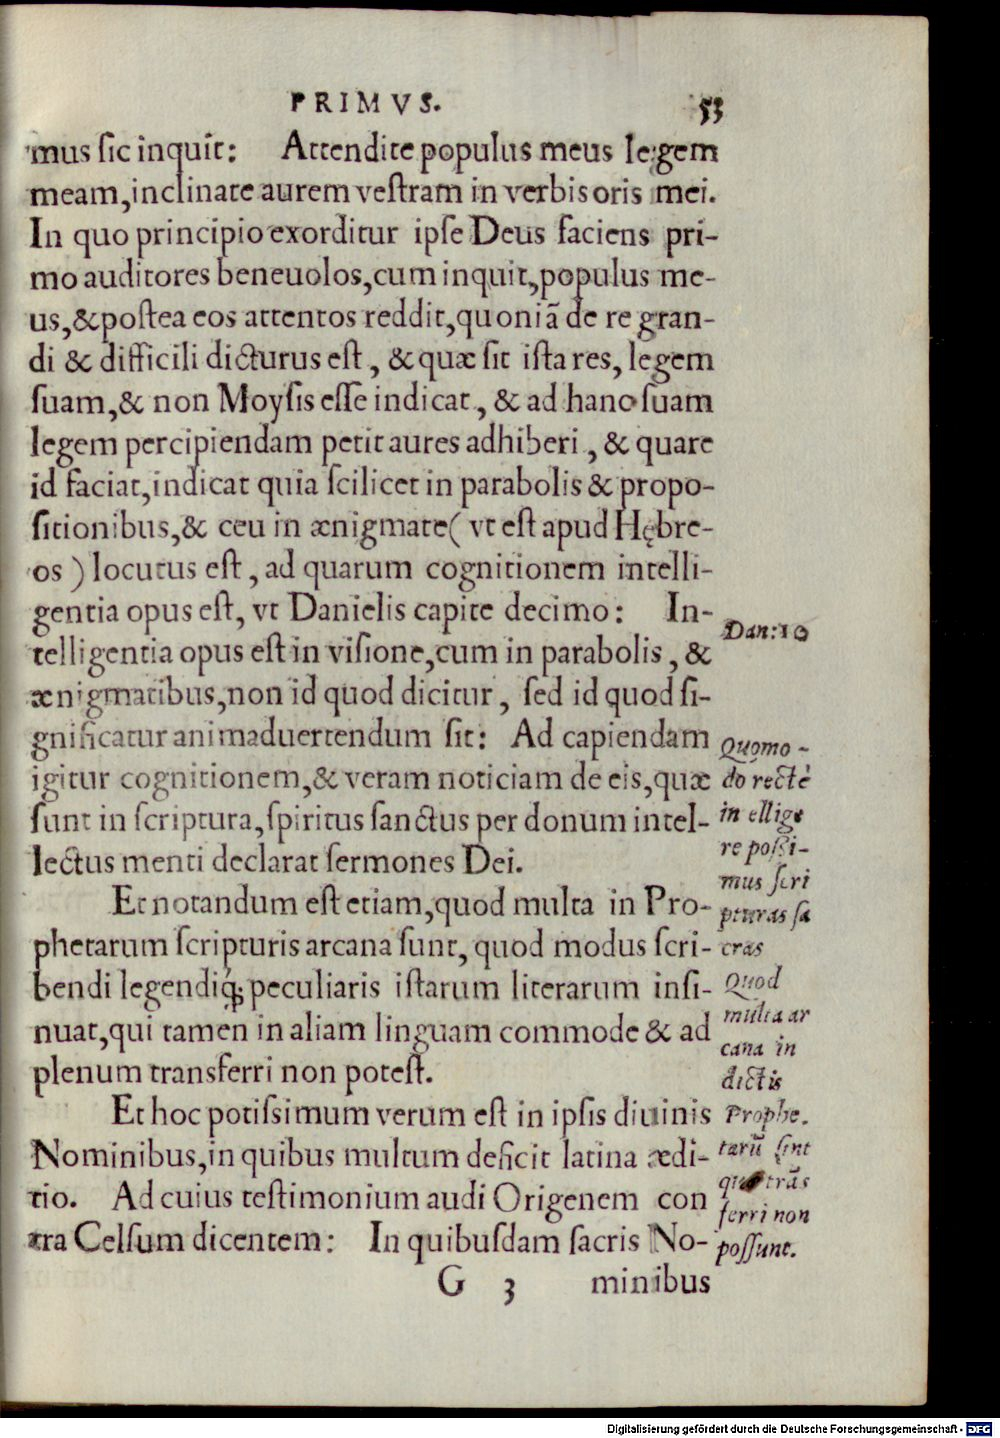 PRIMVS. 53
mus ſic inquit: Attendite populus meus legem
meam,inclinate aurem veſtram in verbis oris mei.
In quo principio exorditur ipſe Deus faciens pri-
mo auditores beneuolos,cum inquit,populus me-
us,&poſtea eos attentos reddit,quoniã de re gran-
di & difficili dicturus eſt, & quæ ſit iſta res, legem
ſuam,& non Moyſis eſſe indicat, & ad hanc ſuam
legem percipiendam petit aures adhiberi, & quare
id faciat,indicat quia ſcilicet in parabolis & propo-
ſitionibus,& ceu in ænigmate( vt eſt apud Hębre-
os ) locutus eſt, ad quarum cognitionem intelli-
gentia opus eſt, vt Danielis capite decimo: In-
telligentia opus eſt in viſione,cum in parabolis, &
ænigmatibus,non id quod dicitur, ſed id quod ſi-
gnificatur animaduertendum ſit: Ad capiendam
igitur cognitionem,& veram noticiam de eis,quæ
ſunt in ſcriptura,ſpiritus ſanctus per donum intel-
lectus menti declarat ſermones Dei.
Et notandum eſt etiam,quod multa in Pro-
phetarum ſcripturis arcana ſunt, quod modus ſcri-
bendi legendiq́; peculiaris iſtarum literarum inſi-
nuat,qui tamen in aliam linguam commode & ad
plenum transferri non poteſt.
Et hoc potiſsimum verum eſt in ipſis diuinis
Nominibus,in quibus multum deficit latina ædi-
tio. Ad cuius teſtimonium audi Origenem con
tra Celſum dicentem: In quibuſdam ſacris No-
G 3 minibus
Dan:10
Quomo-
do rectè
in ellige
re poſſi-
mus ſcri
pturas ſa
cras
Quod
multa ar
cana in
dictis
Prophe.
tarũ ſint
quę trãs
ferri non
poſſunt.
Digitalisierung gefördert durch die Deutsche Forschungsgemeinschaft - DFG